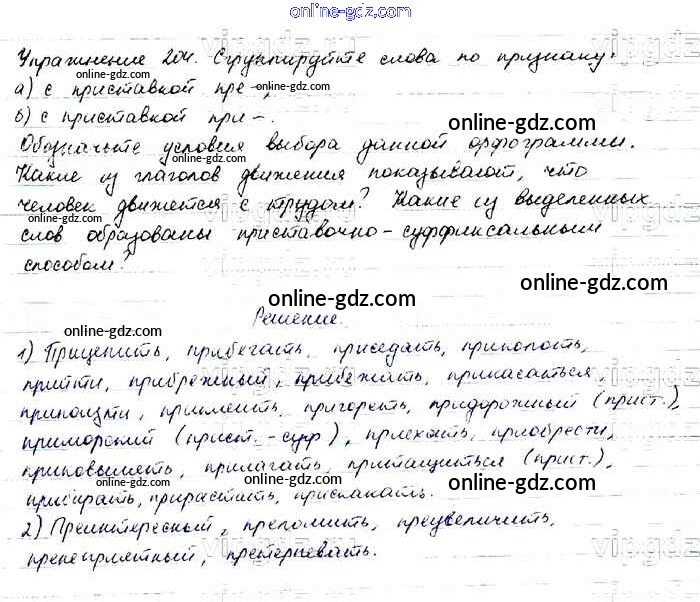 online-gdz.com
Упражнение 204. Сгруппируйте слова по признаку:
online-gdz.com
а) с приставкой пре-,
б) с приставкой при-.
online-gdz.com
Обозначьте условия выбора данной орфограммы.
online-gdz.com
Какие из глаголов движения показывают, что
человек движется с трудом? Какие из выделенных
online-gdz.com
online-gdz.com
слов образованы приставочно-суффиксальным
способом?
online-gdz.com
online-gdz.com
Решение.
online-gdz.com
1) Прицепить, прибегать, приседать, приколоть,
online-gdz.com
прийти, прибрежный, прибежать, прикасаться,
приползти, приклеить, пригореть, придорожный (прист.),
online-gdz.com
приморский (прист.-суфф), приехать, приобрести,
online-gdz.com
приповышать, прилагать, притащиться (прист.),
online-gdz.com
пригирать, прирастать, прискакать.
online-gdz.com
2) Преинтересный, преломить, преувеличить,
online-gdz.com
пренеприятный, претерпевать.